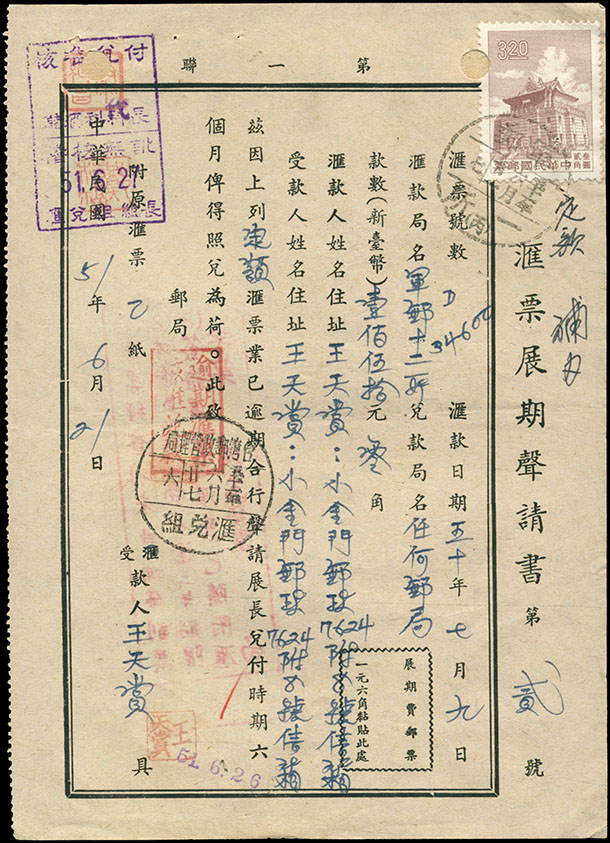 第一聯
3.20
中華民國郵票
叁圓貳角
匯票展期聲請書 第 貳 號
匯票號數 D 34600 匯款日期 五十年 七月 九日
匯款局名 軍郵十二所 兌款局名 任何郵局
款數(新臺幣)壹佰伍拾元 零 角
展期費郵票
一元六角粘貼此處
匯款人姓名住址 王天賞:小金門郵政7624附5號信箱
受款人姓名住址 王天賞:小金門郵政7624附5號信箱
茲因上列 匯票業已逾期合行聲請展長兌付時期六
個月俾得照兌為荷。此致
郵局
附原匯票 乙 紙
匯
受 款人 王天賞 具
中華民國 51 年 6 月 21 日
核准兌付
51.6.27
台灣郵政管理局
五十一年
六月
廿七
匯兌組
王天賞
51.6.26